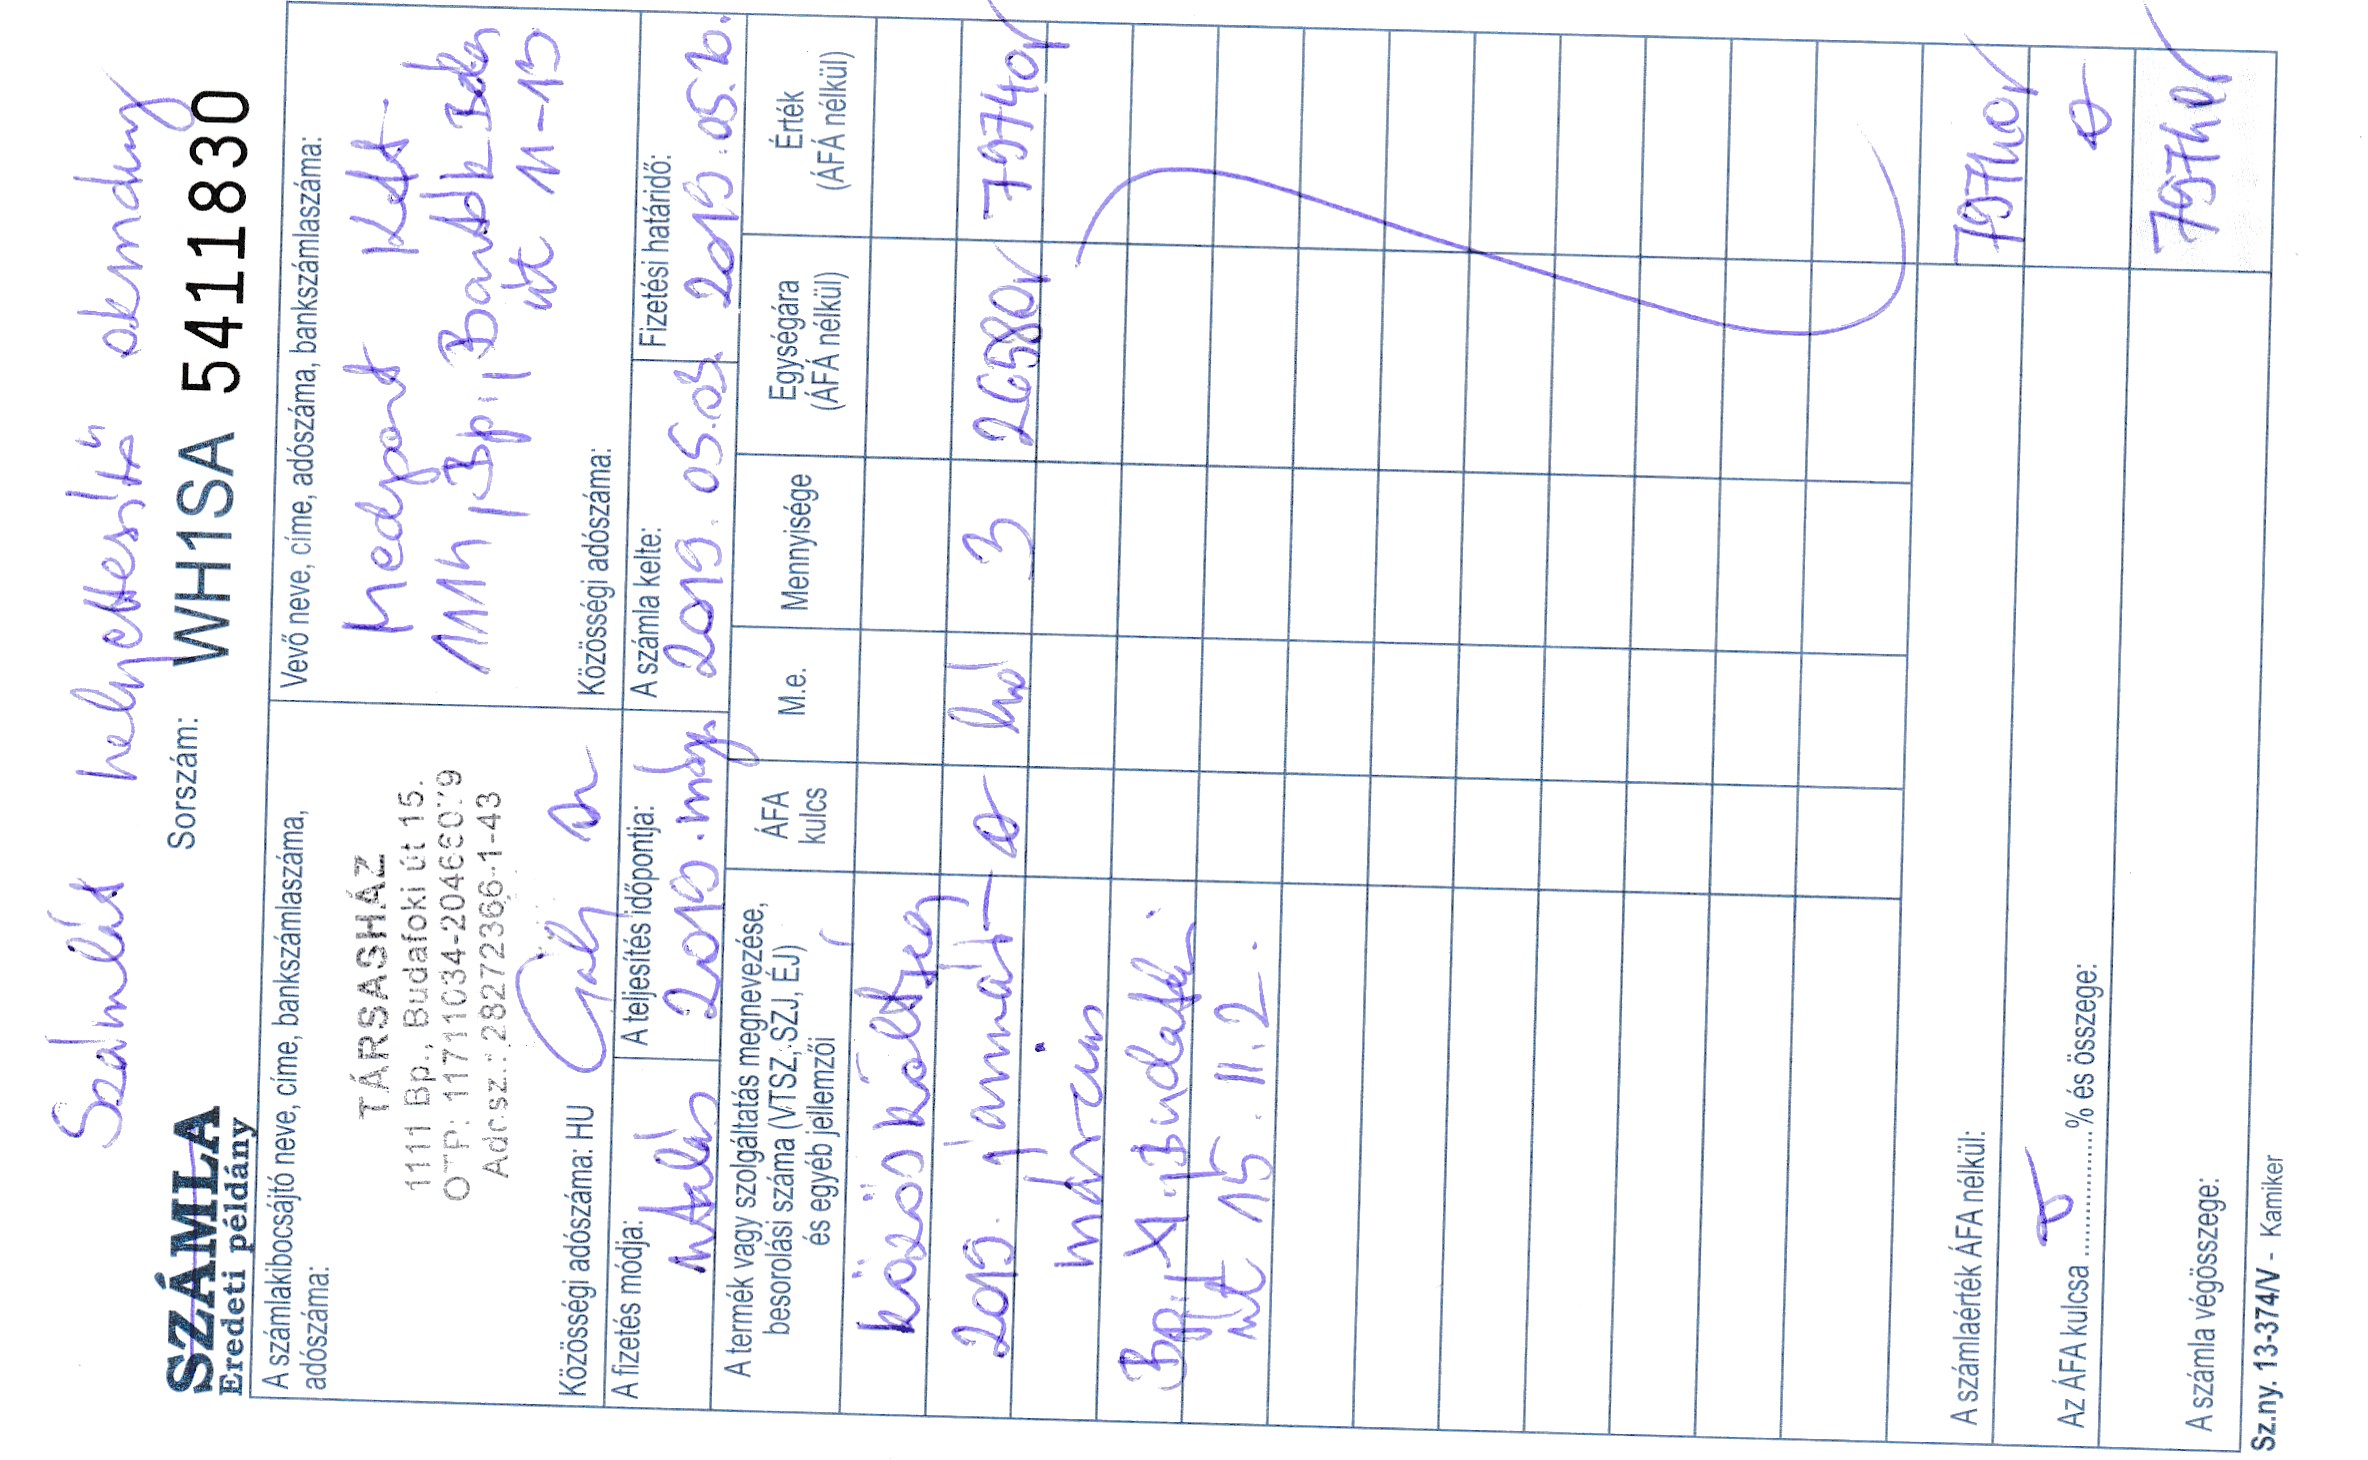 Számlát helyettesítő okmány
SZÁMLA
Eredeti példány
Sorszám: WH1SA 5411830
A számlakibocsájtó neve, címe, bankszámlaszáma,
adószáma:
TÁRSASHÁZ
1111 Bp., Budafoki út 15.
OTP: 11711034-20466079
Adósz.: 28272366-1-43
Közösségi adószáma: HU
Vevő neve, címe, adószáma, bankszámlaszáma:
Medport Kft.
1114, Bp., Bartók Béla
út 11-13
Közösségi adószáma:
A fizetés módja:
utalás
A teljesítés időpontja:
2019. május
A számla kelte:
2019. 05.03.
Fizetési határidő:
2019.05.20.
A termék vagy szolgáltatás megnevezése,
besorolási száma (VTSZ, SZJ, ÉJ)
és egyéb jellemzői
ÁFA
kulcs
M.e.
Mennyisége
Egységára
(ÁFÁ nélkül)
Érték
(ÁFÁ nélkül)
közös költség
2019. január- 0 hó 3 26580 79740
március
Bp., XI., Budafoki
út 15. II. 2.
A számlaérték ÁFA nélkül: 79740
Az ÁFA kulcsa 0 % és összege: 0
A számla végösszege: 79740
Sz.ny. 13-374/V - Kamiker